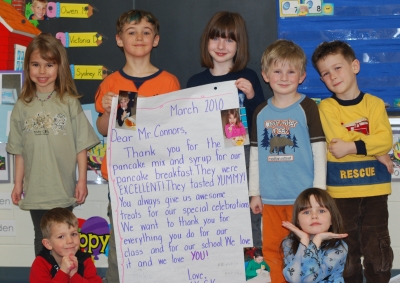 Owen
Victoria
Sydney R
March 2010
Dear Mr Connors,
Thank you for the
pancake mix and syrup for our
pancake breakfast. They were
EXCELLENT! They tasted YUMMY!
You always give us awesome
treats for our special celebrations
We want to thank you for
everything you do for our
class and for our school. We love
it and we love YOU!
Love,
RESCUE